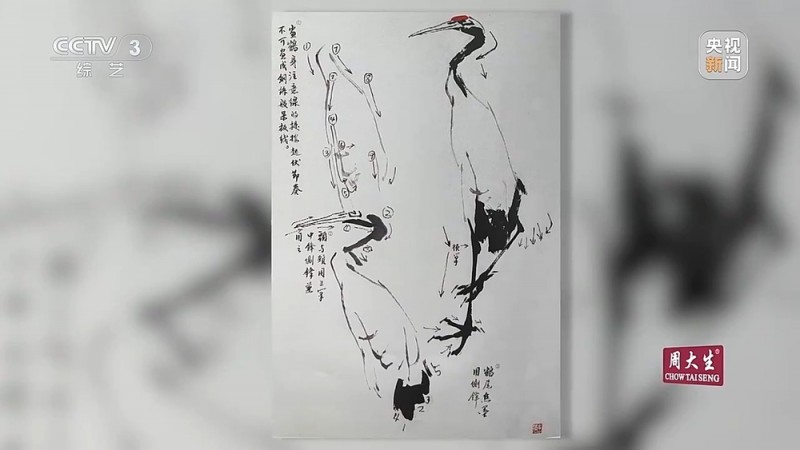 CCTV 3
综艺
央视
新闻
画鹤身注意线的转折起伏节奏
不可画成钢条般呆板线。
①
①
②
④
③
②
颈与眼用三笔
中锋侧锋兼
用之
侧笔
鹤尾焦墨
用侧锋
5
3
2
4
1
周大生®
CHOW TAI SENG